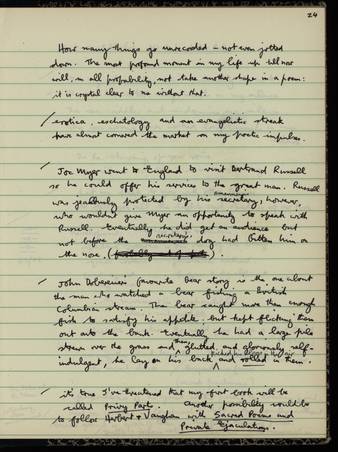 24
How many things go unrecorded – not even jotted
down. The most profound moment in my life up till now
will, in all probability, not take another shape in a poem:
it is crystal clear to me without that.
/ erotica, eschatology and an evangelistic streak
have almost cornered the market on my poetic impulses.
/ Joe Myer went to England to visit Bertrand Russell
so he could offer his services to the great man. Russell
was jealously protected by his secretary, however,
who wouldn't give Myer an opportunity to speak with
Russell. Eventually he did get an audience but
not before the secretary's dog had bitten him on
the nose.
/ John Dobereiner's favourite bear story is the one about
the man who watched a bear fishing a British
Columbian stream. The bear caught more than enough
fish to satisfy his appetite but kept flicking them
out onto the bank. Eventually he had a large pile
strewn over the grass and then, glutted and gloriously self-
indulgent, he lay on his back and rolled in them.
/ it's true I've threatened that my first book will be
called Privy Parts. Another possibility would be
to follow Herbert & Vaughan with Sacred Poems and
Private Ejaculations.